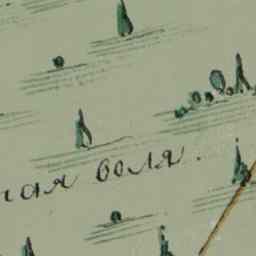 ная воля.